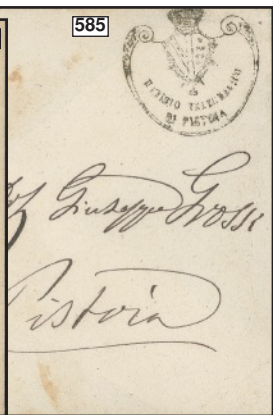 585
UFFIZIO TELEGRAFICO
DI PISTOIA
Giuseppe Grossi
Pistoia